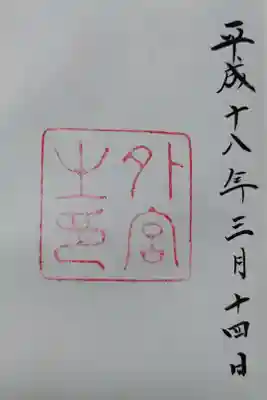 平成十八年三月十四日
外宮
之印